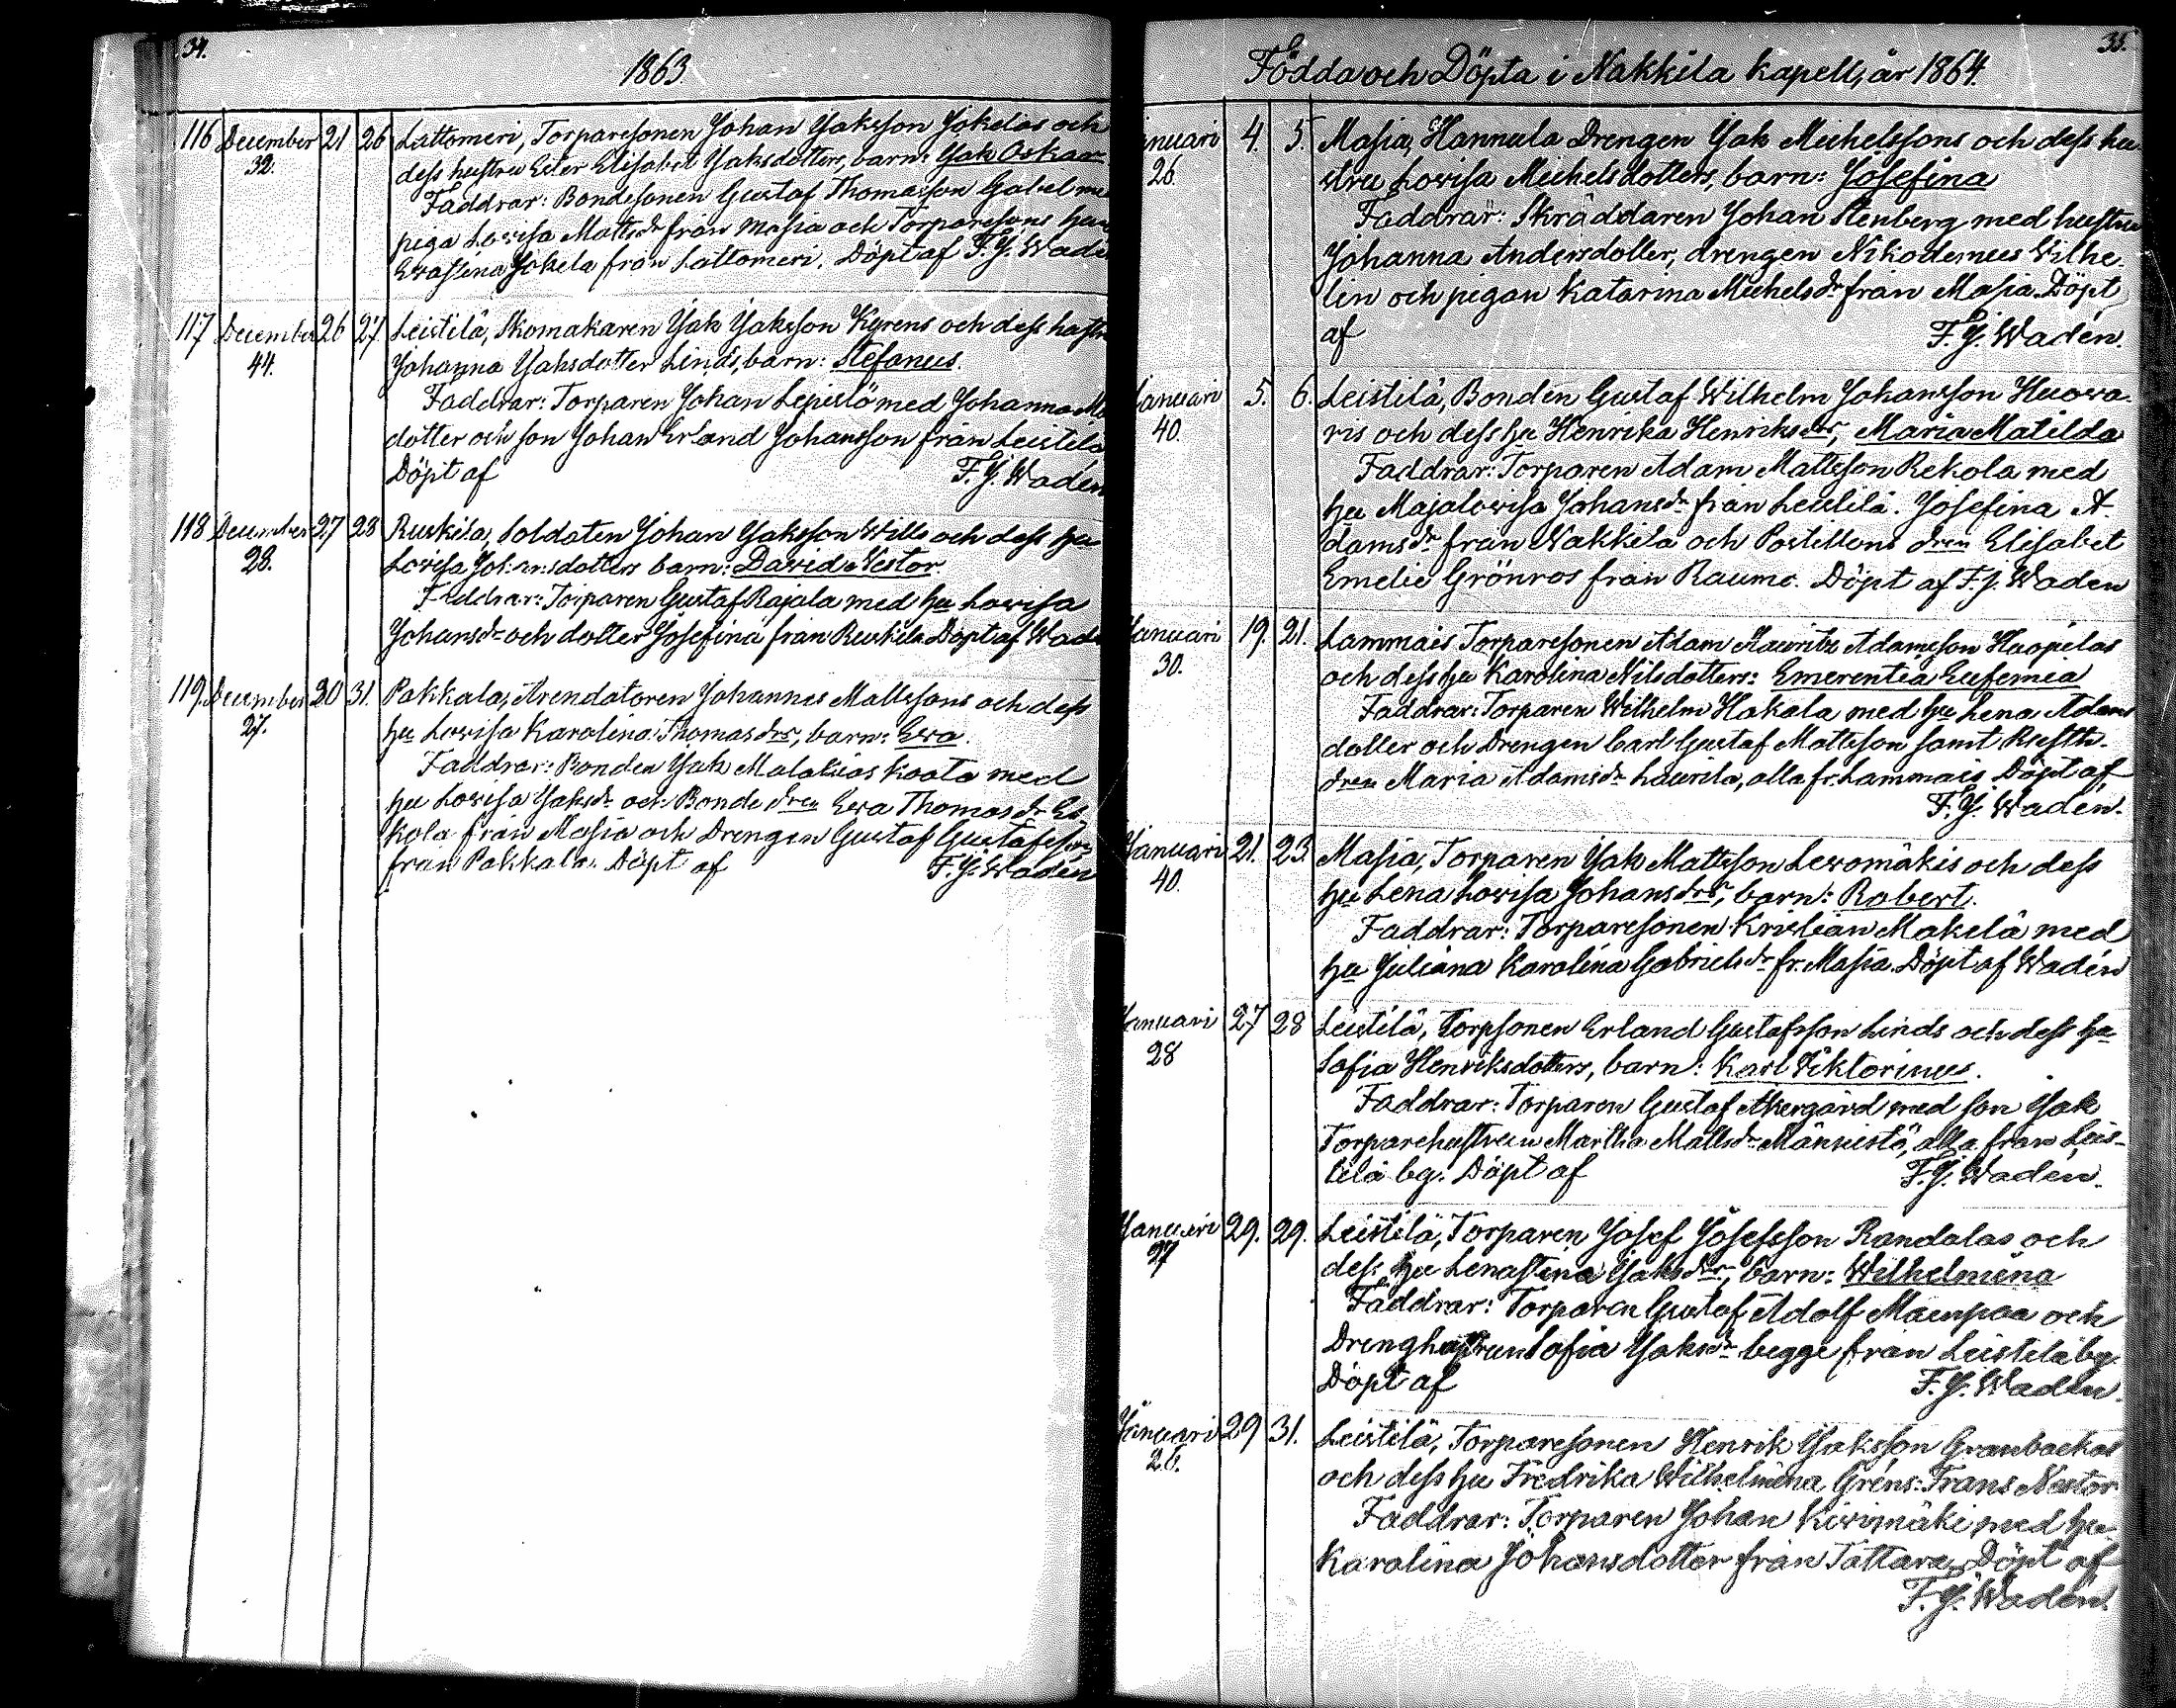 34.
1863
116 December 21 26 Lattomeri, Torparesonen Johan Jaksson Jokelas och
32. dess hustru Ester Elisabet Jaksdotters, barn: Jak Oskar
Faddrar: Bondesonen Gustaf Thomasson Gabel
piga Lovisa Mattsdr från Masia och Torparesons
Evastina Jokela från Lattomeri. Döpt af F. J. Wadé
117 December 26 27 Leistilä, Skomakaren Jak Jaksson Kyrens och dess hustr
44. Johanna Jaksdotter Linds, barn: Stefanus.
Faddrar: Torparen Johan Lepistö med Johanna
dotter och son Johan Erland Johansson från Leistilä
Döpt af F. J. Wadén
118 December 27 28 Ruskila, Soldaten Johan Jaksson Wills och dess hu
28. Lovisa Johansdotters barn: David Nestor.
Faddrar: Torparen Gustaf Rajala med hu Lovisa
Johansdr och dotter Josefina från Ruskila Döpt af Wadé
119. December 30 31. Pakkala, Arendatoren Johannes Mattssons och dess
27. hu Lovisa Karolina Thomasdrs, barn: Eva.
Faddrar: Bonden Jak Malakias Koota med
hu Lovisa Jaksdr och Bonde dren Eva Thomasdr Es
kola från Masia och Drengen Gustaf Gustafsson
från Pakkala. Döpt af F. J. Wadén
35.
Födda och Döpta i Nakkila kapell, år 1864.
Januari 4. 5. Masia, Hannula Drengen Jak Michelssons och dess hu
26. stru Lovisa Michelsdotters, barn: Josefina
Faddrar: Skräddaren Johan Stenberg med hustru
Johanna Andersdotter, drengen Nikodemus Wilhe
lin och pigan Katarina Michelsdr från Masia. Döpt
af F. J. Wadén.
Januari 5. 6. Leistilä, Bonden Gustaf Wilhelm Johansson Huova
40. ris och dess hu Henrika Henriksdrs, Maria Matilda
Faddrar: Torparen Adam Mattsson Rekola med
hu Majalovisa Johansdr från Leistilä. Josefina A
damsdr från Nakkila och Postillons dren Elisabet
Emelie Grönros från Raumo. Döpt af F. J. Wadén
Januari 19. 21. Lammais Torparesonen Adam Mauritz Adamsson Haapelas
30. och dess hu Karolina Nilsdotters: Emerentia Eufemia
Faddrar: Torparen Wilhelm Hakala med hu Lena Adams
dotter och Drengen Carl Gustaf Mattsson samt
dren Maria Adamsdr Laurila, alla fr. Lammais Döpt af
F. J. Wadén.
Januari 21. 23 Masia, Torparen Jak Mattsson Levomäkis och dess
40. hu Lena Lovisa Johansdrs, barn: Robert.
Faddrar: Torparesonen Kristian Makelä med
hu Juliana Karolina Gabrielsdr fr. Masia. Döpt af Wadén
Januari 27 28 Leistilä, Torpsonen Erland Gustafsson Linds och dess hu
28 Sofia Henriksdotters, barn: Karl Viktorinus.
Faddrar: Torparen Gustaf Åkergård med son Jak
Torparehustrun Martha Mattsdr Männistö, alla från Leis-
tilä by. Döpt af F. J. Wadén.
Januari 29. 29. Leistilä, Torparen Josef Josefsson Randalas och
27 dess hu Lenastina Jaksdrs, barn: Wilhelmina
Faddrar: Torparen Gustaf Adolf Mampaa och
Drenghustrun Sofia Jaksdr begge från Leistilä by.
Döpt af F. J. Wadén.
Januari 29 31. Leistilä, Torparesonen Henrik Jaksson Granbackas
26. och dess hu Fredrika Wilhelmina Gréns: Frans Nestor
Faddrar: Torparen Johan Kivimäki med hu
Karolina Johansdotter från Tattara, Döpt af
F. J. Wadén.